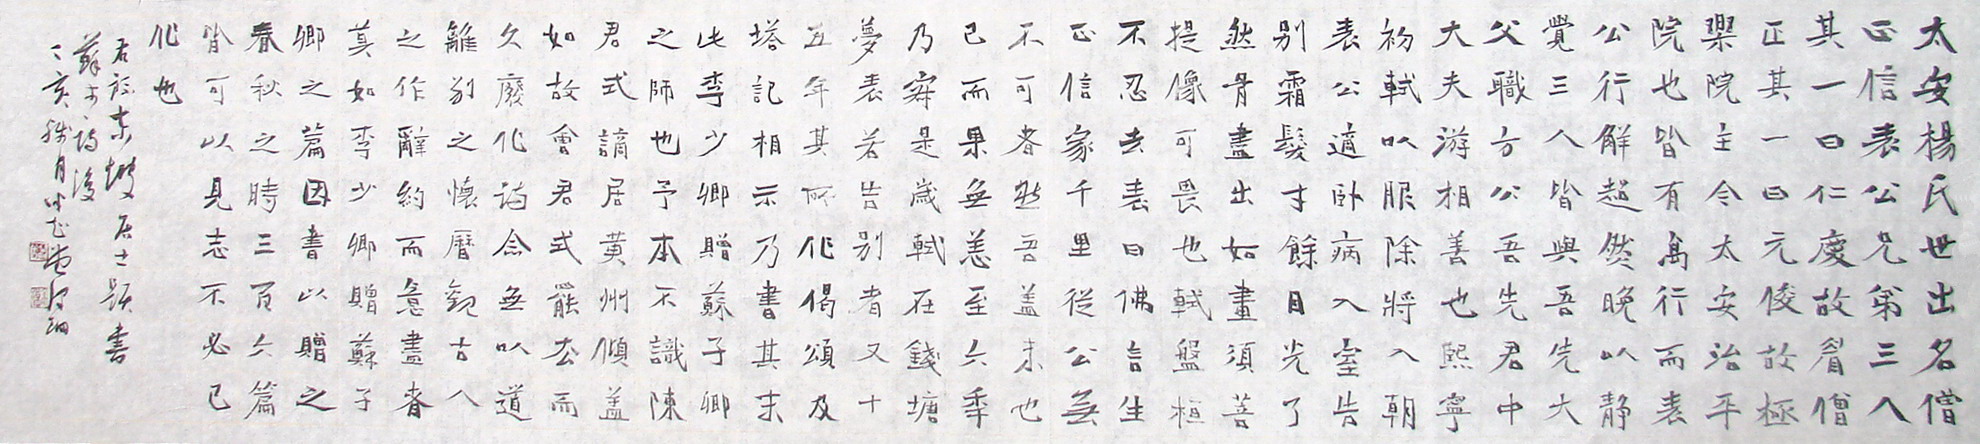 太安楊氏世出名僧
正信表公兄弟三人
其一曰仁慶故眉僧
正其一曰元俊故極
樂院主今太安治平
院也皆有高行而表
公行解超然晚以靜
覺三人皆與吾先大
父職方公吾先君中
大夫游相善也熙寧
初軾以服除將入朝
表公適臥病入室告
別霜髮寸餘目光了
然骨盡出如畫須菩
提像可畏也軾盤桓
不忍去表曰佛言生
正信家千里從公無
不可者然吾蓋未也
已而果無恙至六年
乃寂是歲軾在錢塘
夢表若告別者又十
五年其所作偈頌及
塔記相示乃書其末
此李少卿贈蘇子卿
之師也予本不識陳
君式謫居黃州傾蓋
如故會君式罷去而
久廢作詩念無以道
離別之懷歷觀古人
之作辭約而意盡者
莫如李少卿贈蘇子
卿之篇因書以贈之
春秋之時三百六篇
皆可以見志不必己
作也
右 東坡居士題書
蘇李詩後
丁亥臘月